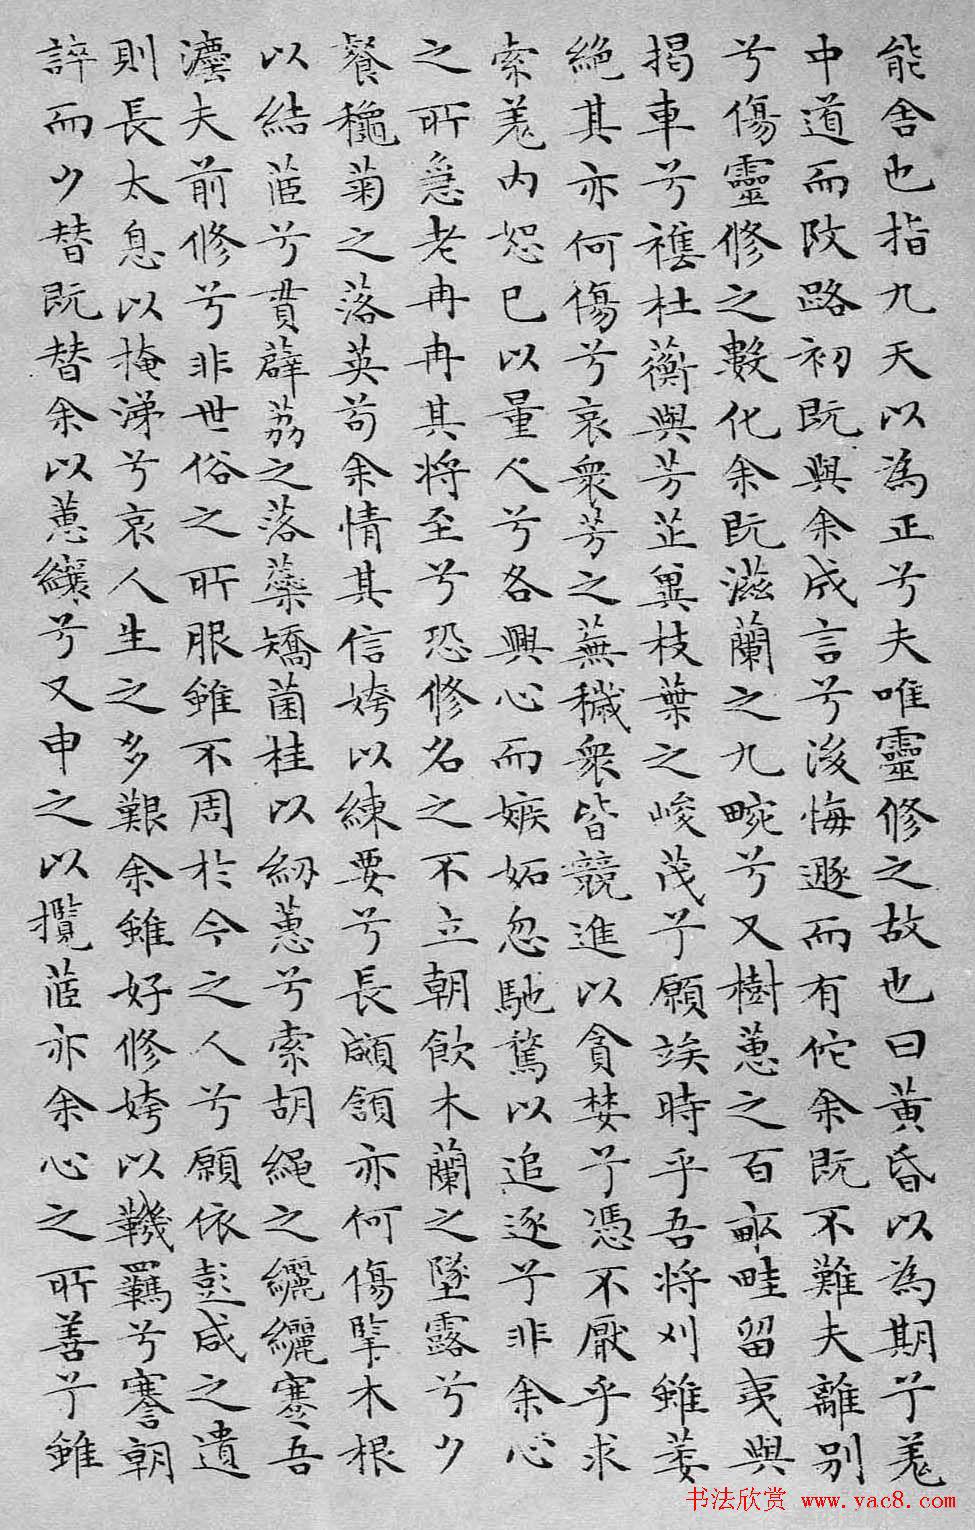 能舍也指九天以為正兮夫唯靈修之故也曰黃昏以為期兮羌
中道而改路初既與余成言兮後悔遯而有佗余既不難夫離別
兮傷靈修之數化余既滋蘭之九畹兮又樹蕙之百畝畦留夷與
揭車兮雜杜蘅與芳芷冀枝葉之峻茂兮願竢時乎吾將刈雖萎
絕其亦何傷兮哀衆芳之蕪穢衆皆競進以貪婪兮憑不厭乎求
索羌內恕己以量人兮各興心而嫉妬忽馳騖以追逐兮非余心
之所急老冉冉其將至兮恐修名之不立朝飲木蘭之墜露兮夕
餐穐菊之落英苟余情其信姱以練要兮長顑頷亦何傷擥木根
以結茝兮貫薜荔之落蘂矯菌桂以紉蕙兮索胡繩之纚纚謇吾
灋夫前修兮非世俗之所服雖不周於今之人兮願依彭咸之遺
則長太息以掩涕兮哀人生之多艱余雖好修姱以鞿羈兮謇朝
誶而夕替既替余以蕙纕兮又申之以攬茝亦余心之所善兮雖
书法欣赏 www.yac8.com